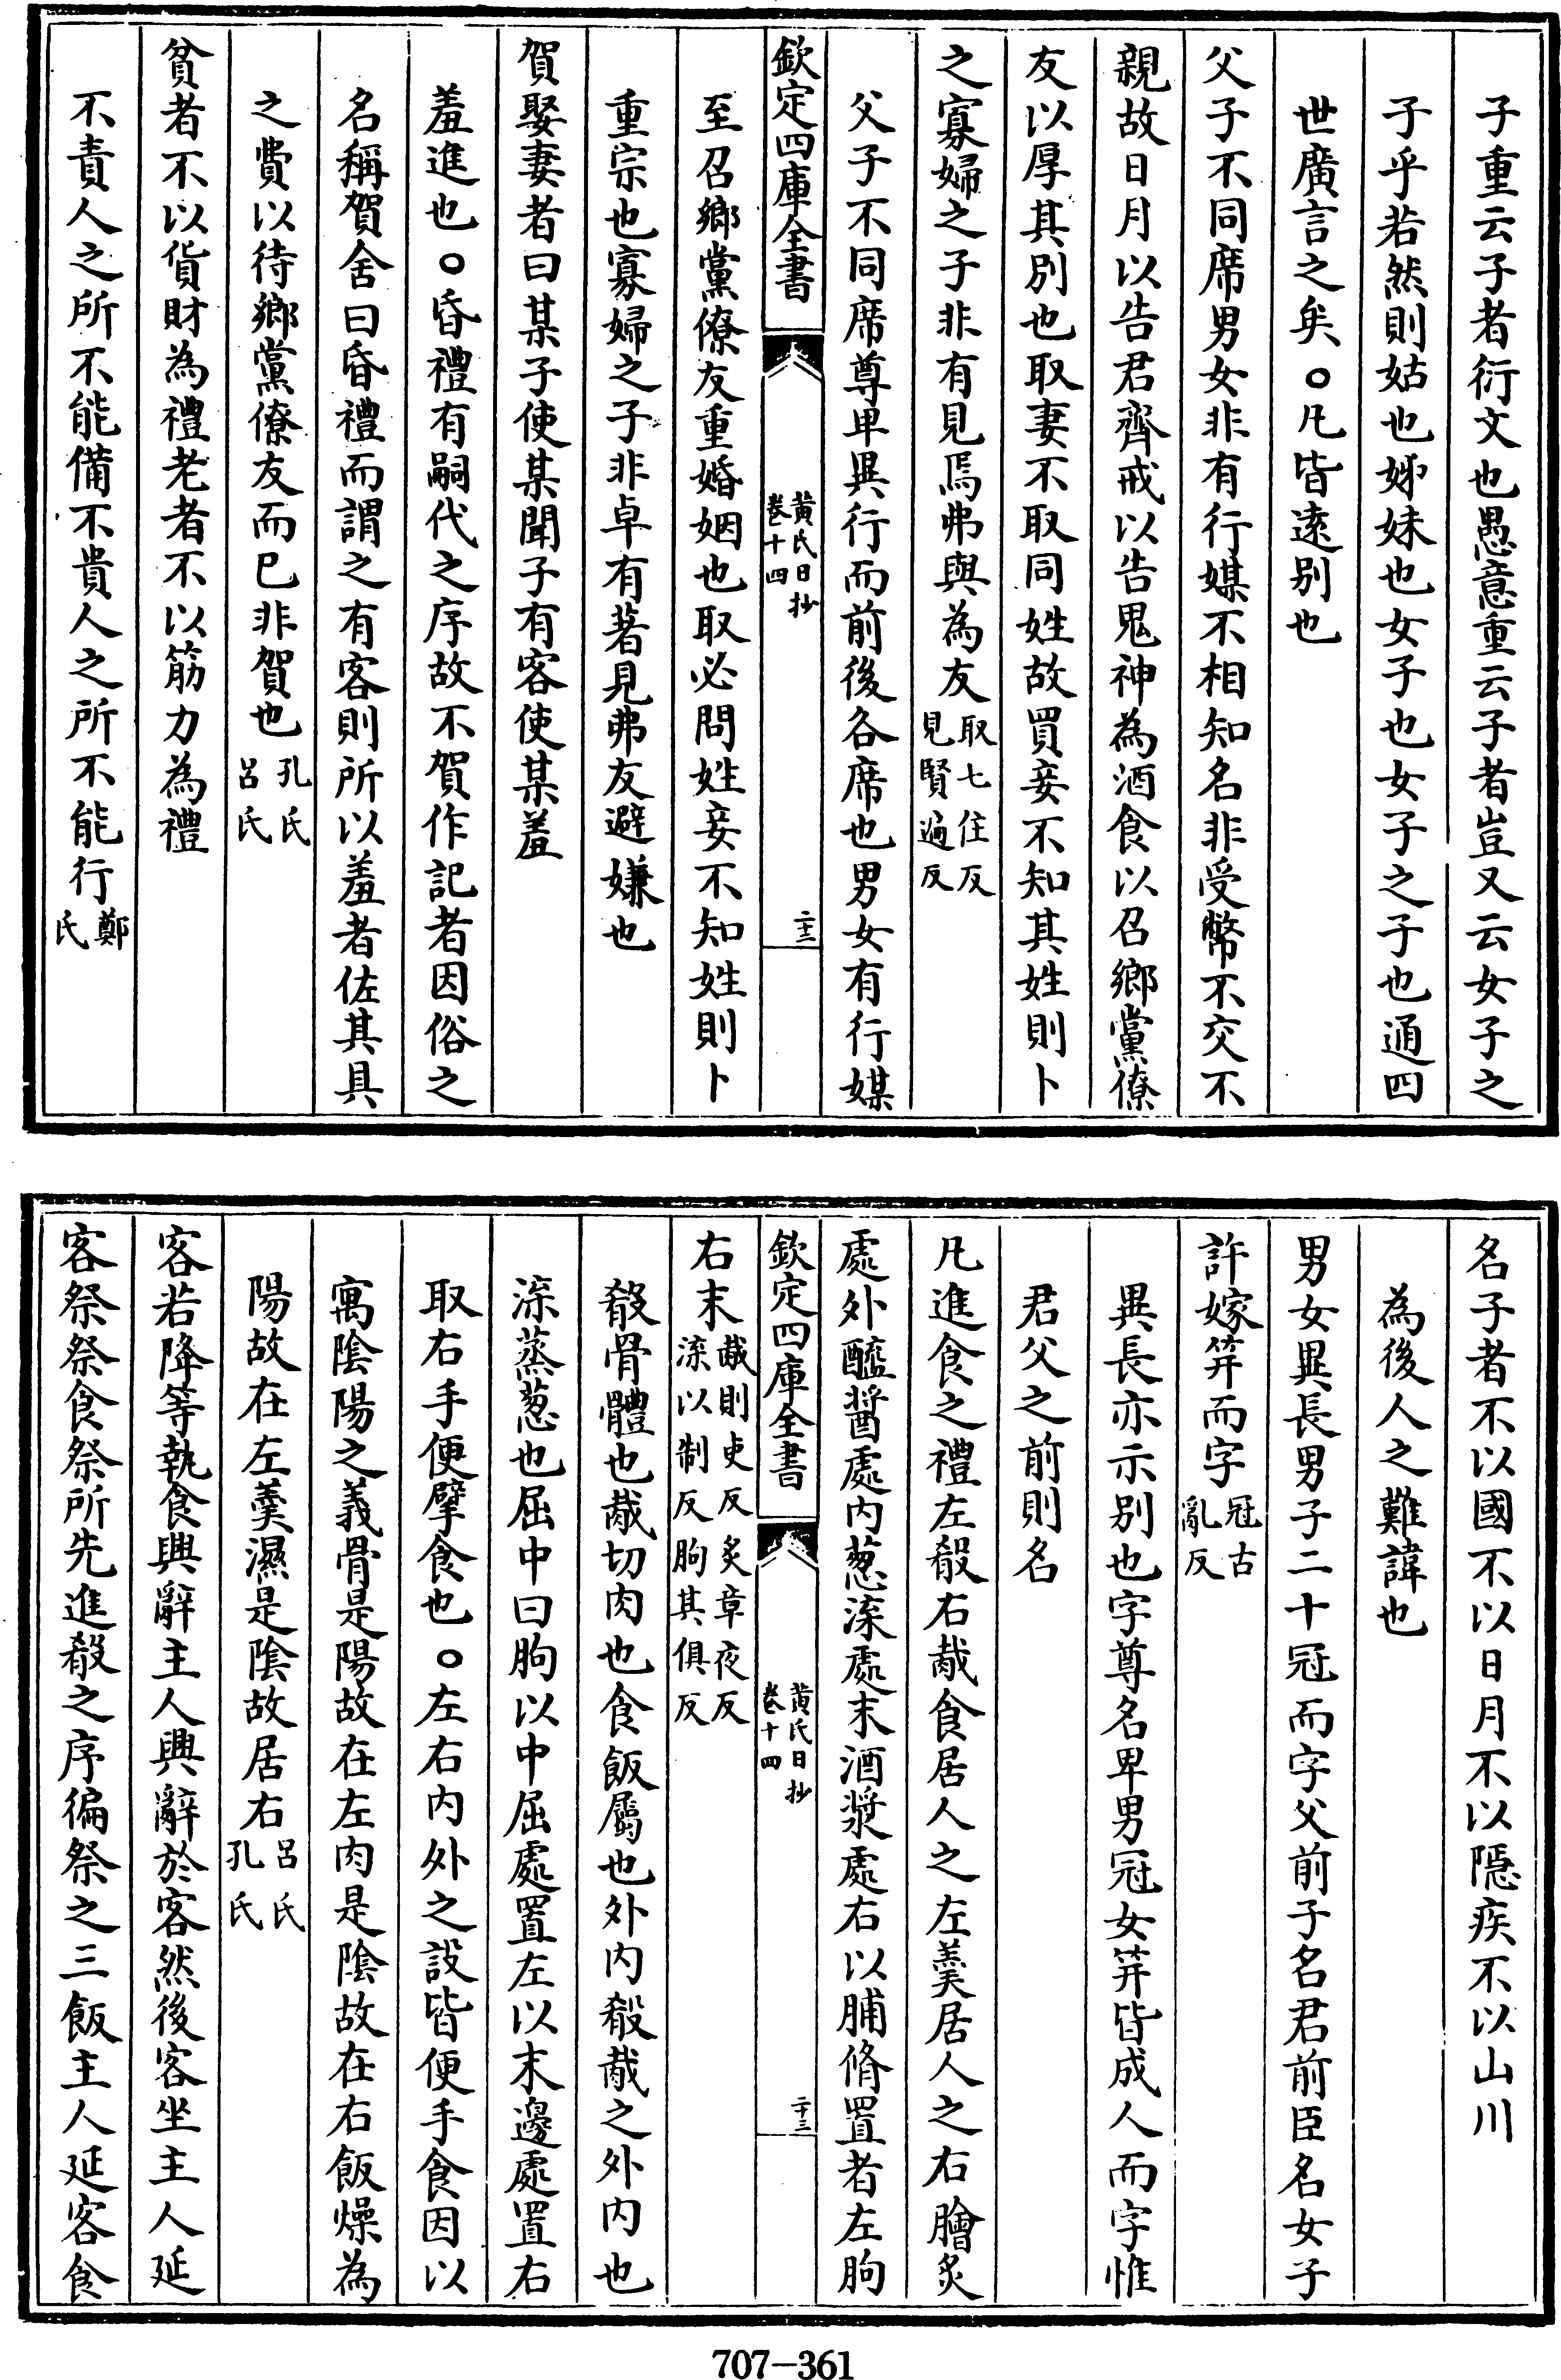 子重云子者衍文也愚意重云子者豈又云女子之
子乎若然則姑也姊妹也女子也女子之子也通四
世廣言之矣○凡皆逺别也
父子不同席男女非有行媒不相知名非受幣不交不
親故日月以告君齊戒以告鬼神為酒食以召鄉黨僚
友以厚其别也取妻不取同姓故買妾不知其姓則卜
之寡婦之子非有見焉弗與為友取七住反見賢遍反
父子不同席尊卑異行而前後各席也男女有行媒
欽定四庫全書
黄氏日抄
卷十四
二十二
至召鄉黨僚友重婚姻也取必問姓妾不知姓則卜
重宗也寡婦之子非卓有著見弗友避嫌也
賀娶妻者曰某子使某聞子有客使某羞
羞進也○昏禮有嗣代之序故不賀作記者因俗之
名稱賀舍曰昏禮而謂之有客則所以羞者佐其具
之費以待鄉黨僚友而已非賀也孔氏吕氏
貧者不以貨財為禮老者不以筋力為禮
不責人之所不能備不貴人之所不能行鄭氏
名子者不以國不以日月不以隠疾不以山川
為後人之難諱也
男女異長男子二十冠而字父前子名君前臣名女子
許嫁笄而字冠古亂反
異長亦示别也字尊名卑男冠女笄皆成人而字惟
君父之前則名
凡進食之禮左殽右胾食居人之左羮居人之右膾炙
處外醯醬處内葱渫處末酒漿處右以脯脩置者左朐
欽定四庫全書
黄氏日抄
卷十四
二十三
右末胾則吏反炙章夜反渫以制反朐其俱反
殽骨體也胾切肉也食飯屬也外内殽胾之外内也
渫蒸葱也屈中曰朐以中屈處置左以末邊處置右
取右手便擘食也○左右内外之設皆便手食因以
寓陰陽之義骨是陽故在左肉是陰故在右飯燥為
陽故在左羮濕是陰故居右吕氏孔氏
客若降等執食興辭主人興辭於客然後客坐主人延
客祭祭食祭所先進殽之序徧祭之三飯主人延客食
707-361